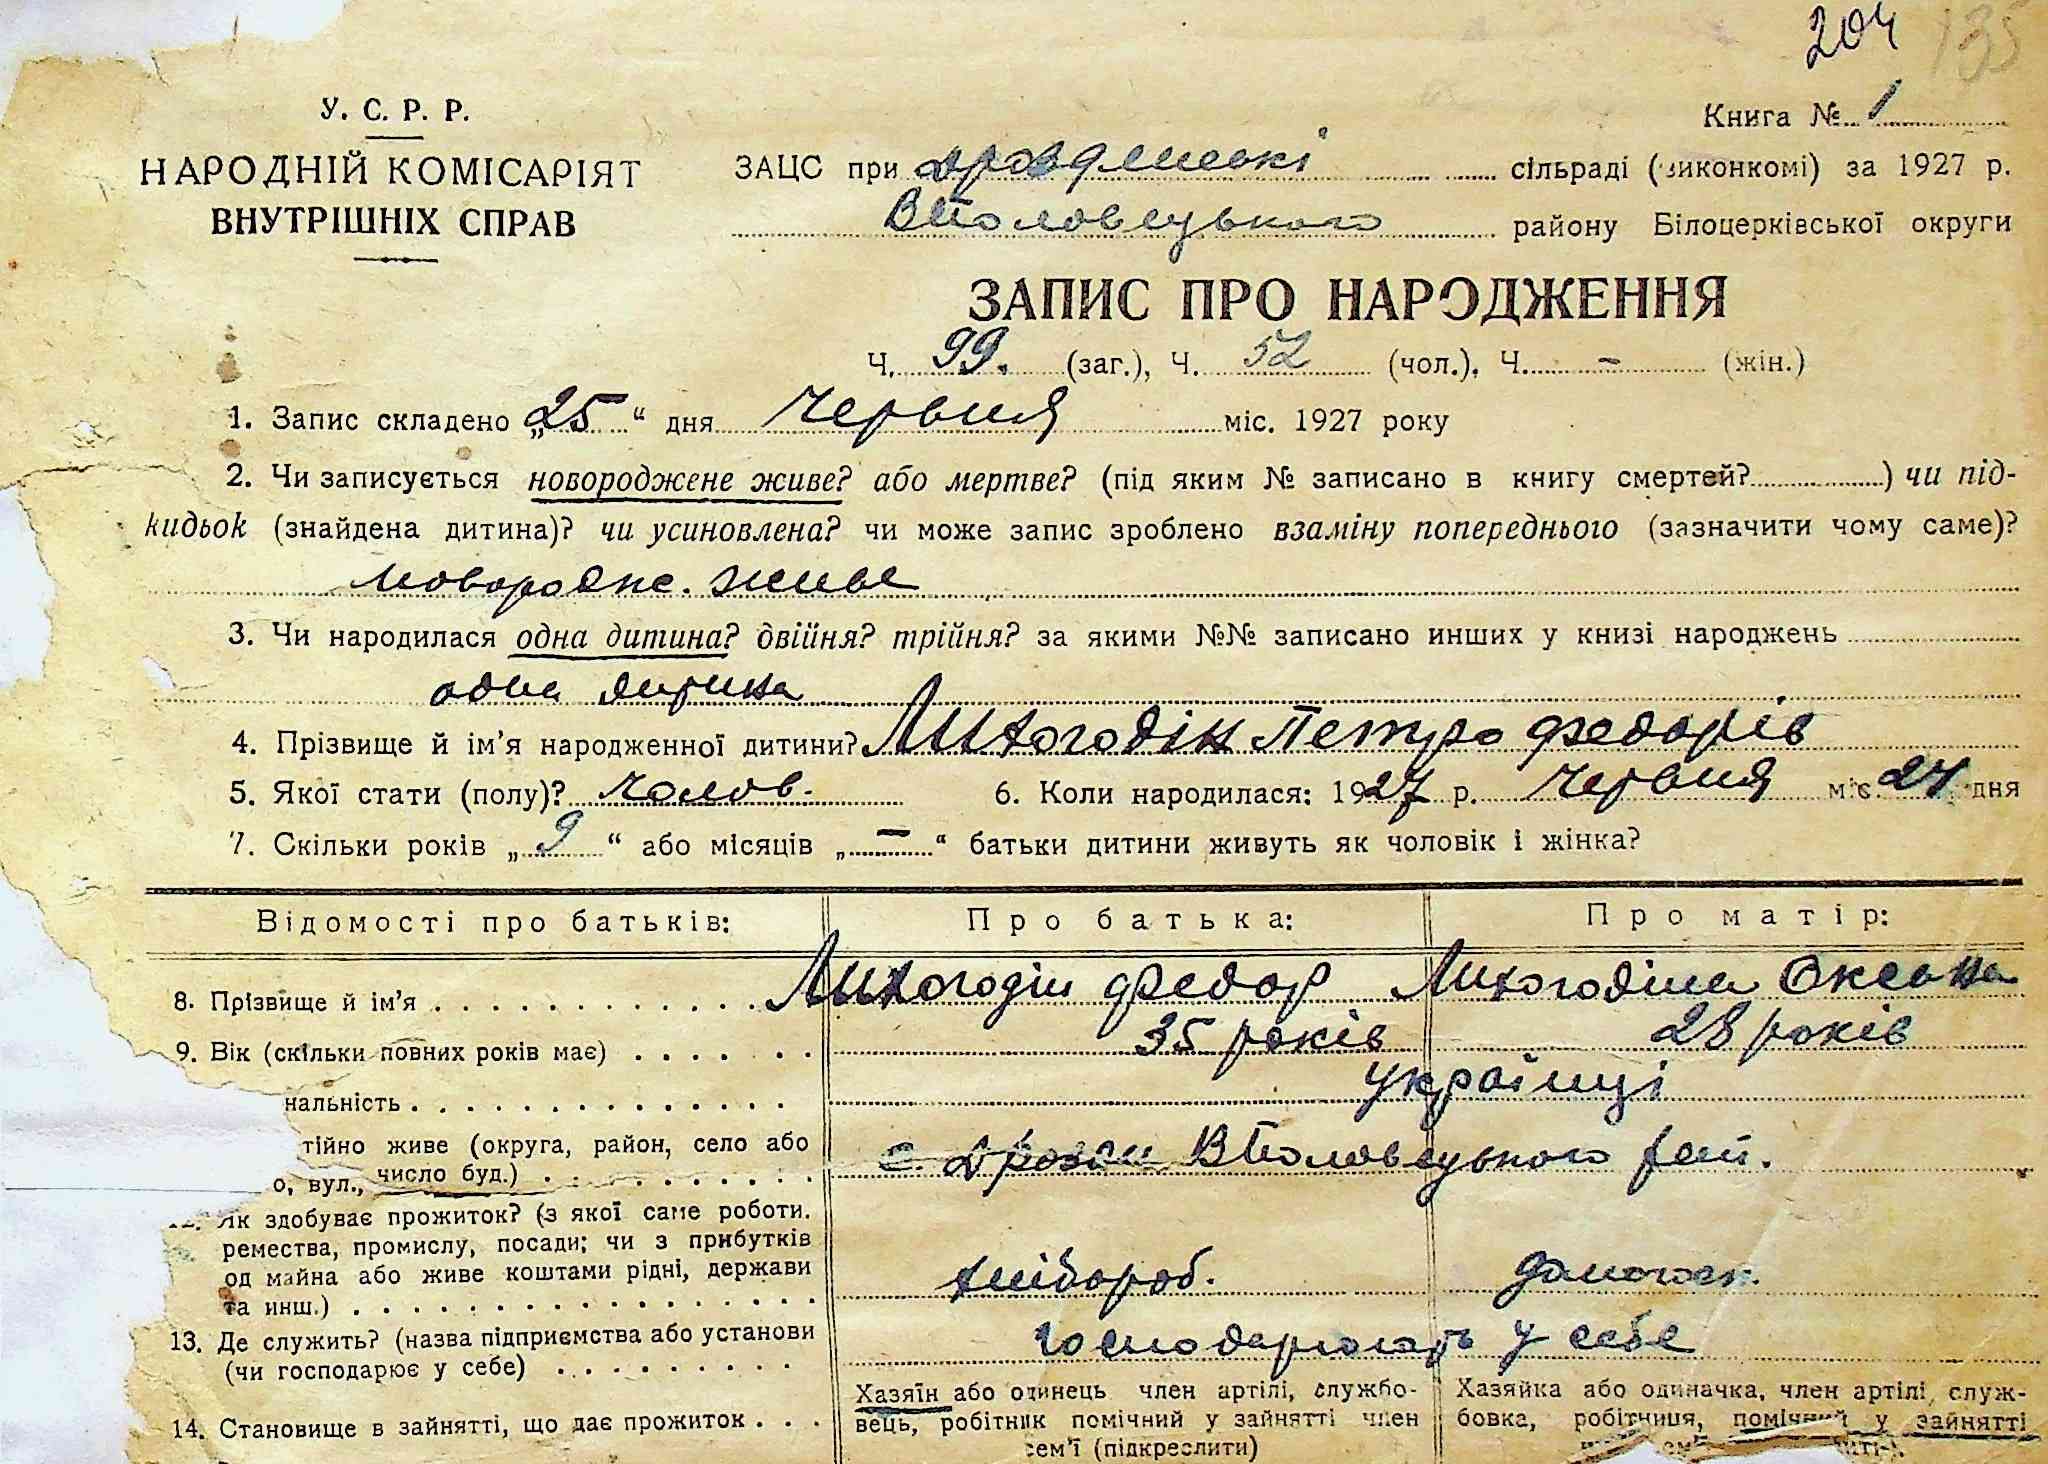 204 135
У. С. Р. Р.
НАРОДНІЙ КОМІСАРІЯТ
ВНУТРІШНІХ СПРАВ
Книга № 1
ЗАЦС при Дроздянські сільраді (виконкомі) за 1927 р.
ВПоловецького району Білоцерківської округи
ЗАПИС ПРО НАРОДЖЕННЯ
Ч. 99. (заг.), Ч. 52 (чол.), Ч. – (жін.)
1. Запис складено „25“ дня червня міс. 1927 року
2. Чи записується новороджене живе? або мертве? (під яким № записано в книгу смертей?) чи під-
кидьок (знайдена дитина)? чи усиновлена? чи може запис зроблено взаміну попереднього (зазначити чому саме)?
новородже. живе
3. Чи народилася одна дитина? двійня? трійня? за якими №№ записано инших у книзі народжень
одна дитина
4. Прізвище й ім’я народженної дитини? Лихогодін Петро Федорів
5. Якої стати (полу)? чолов. 6. Коли народилася: 1927 р. червня міс. 24 дня
7. Скільки років „9“ або місяців „–“ батьки дитини живуть як чоловік і жінка?
Відомості про батьків: Про батька: Про матір:
8. Прізвище й ім’я Лихогодін Федор Лихогодіна Оксана
9. Вік (скільки повних років має) 35 років 28 років
нальність українці
тійно живе (округа, район, село або
о, вул., число буд.) с. Дрозди ВПоловецького рай.
12. Як здобуває прожиток? (з якої саме роботи,
ремества, промислу, посади; чи з прибутків
од майна або живе коштами рідні, держави
та инш.) хлібороб. домогосп.
13. Де служить? (назва підприємства або установи
(чи господарює у себе) господарюють у себе
14. Становище в зайнятті, що дає прожиток
Хазяїн або одинець член артілі, службо-
вець, робітник помічний у зайнятті член
сем’ї (підкреслити)
Хазяйка або одиначка, член артілі, служ-
бовка, робітниця, помічний у зайнятті